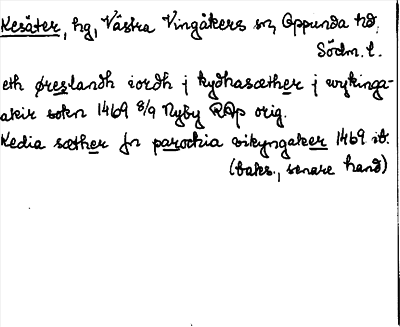 Kesäter, hg, Västra Vingåkers sn, Oppunda hd.
Södm. l.
eth øreslandh iordh j kydhasæther j wykinga-
akir sokn 1469 8/9 Nyby RAp orig.
Kedia sæther jn parochia vikyngaker 1469 ib.
(baks., senare hand)